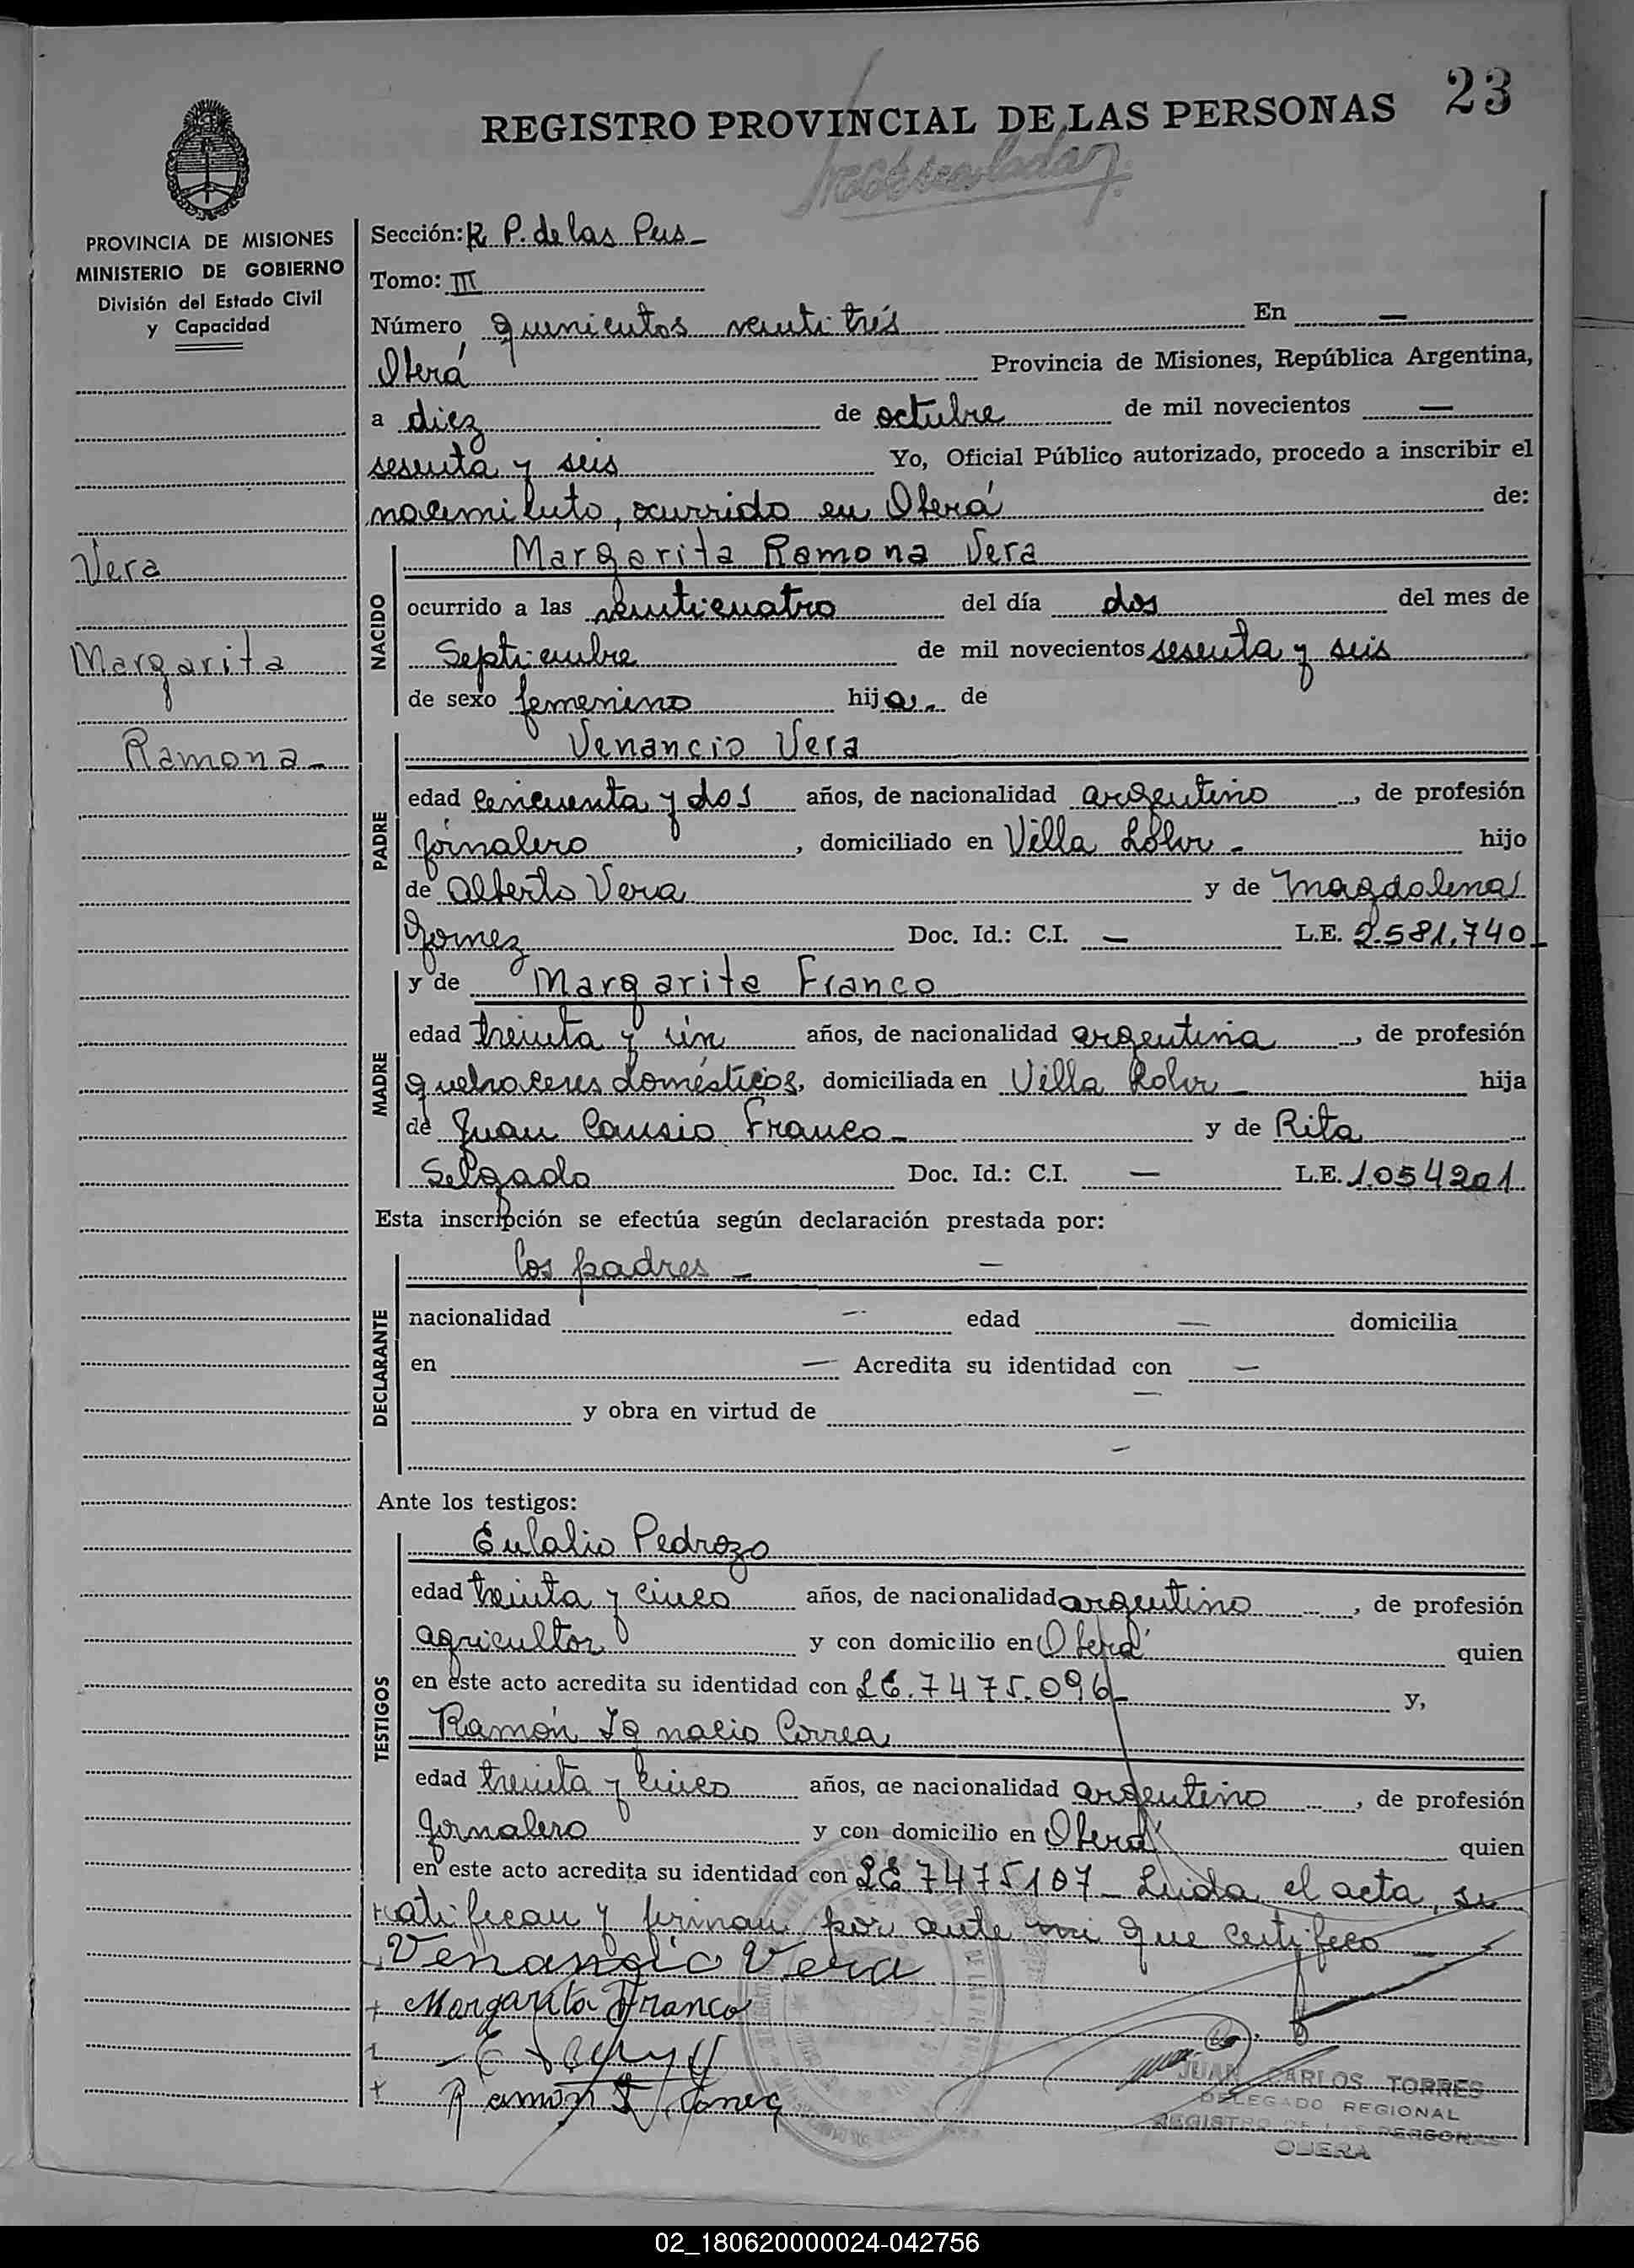 23
REGISTRO PROVINCIAL DE LAS PERSONAS
PROVINCIA DE MISIONES
MINISTERIO DE GOBIERNO
División del Estado Civil
y Capacidad
Vera
Margarita
Ramona -
Sección: R P. de las Pers -
Tomo: III
Número quinientos veinti trés En —
Oberá Provincia de Misiones, República Argentina,
a diez de octubre de mil novecientos —
sesenta y seis Yo, Oficial Público autorizado, procedo a inscribir el
nacimiento, ocurrido en Oberá de:
NACIDO
Margarita Ramona Vera
ocurrido a las veinticuatro del día dos del mes de
Septiembre de mil novecientos sesenta y seis
de sexo femenino hija. de
PADRE
Venancio Vera
edad cincuenta y dos años, de nacionalidad argentino, de profesión
Jornalero, domiciliado en Villa - hijo
de Alberto Vera y de Magdalena
Gomez Doc. Id.: C.I. — L.E. 2.581.740
MADRE
y de Margarita Franco
edad treinta y un años, de nacionalidad argentina, de profesión
quehaceres domésticos, domiciliada en Villa hija
de Juan Franco - y de Rita
Selgado Doc. Id.: C.I. — L.E. 1054201
Esta inscripción se efectúa según declaración prestada por:
DECLARANTE
los padres - —
nacionalidad — edad — domicilia
en — Acredita su identidad con —
y obra en virtud de —
—
Ante los testigos:
TESTIGOS
Eulalio Pedrozo
edad treinta y cinco años, de nacionalidad argentino, de profesión
agricultor y con domicilio en Oberá quien
en este acto acredita su identidad con LE. 7475.096 - y,
Ramón Ignacio Correa
edad treinta y cinco años, de nacionalidad argentino, de profesión
Jornalero y con domicilio en Oberá quien
en este acto acredita su identidad con LE 7475107 - Leida el acta, se
ratifican y firman por ante mi que certifico -
Venancio Vera
+ Margarita Franco
+ Ramón I.
JUAN CARLOS TORRES
DELEGADO REGIONAL
REGISTRO DE LAS PERSONAS
OBERA
02_180620000024-042756